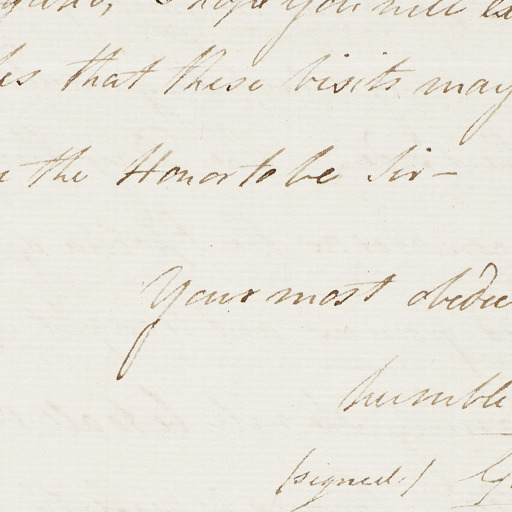 I hope you will
that these visits may
the Honor to be Sir -
Your most
humble
(signed)